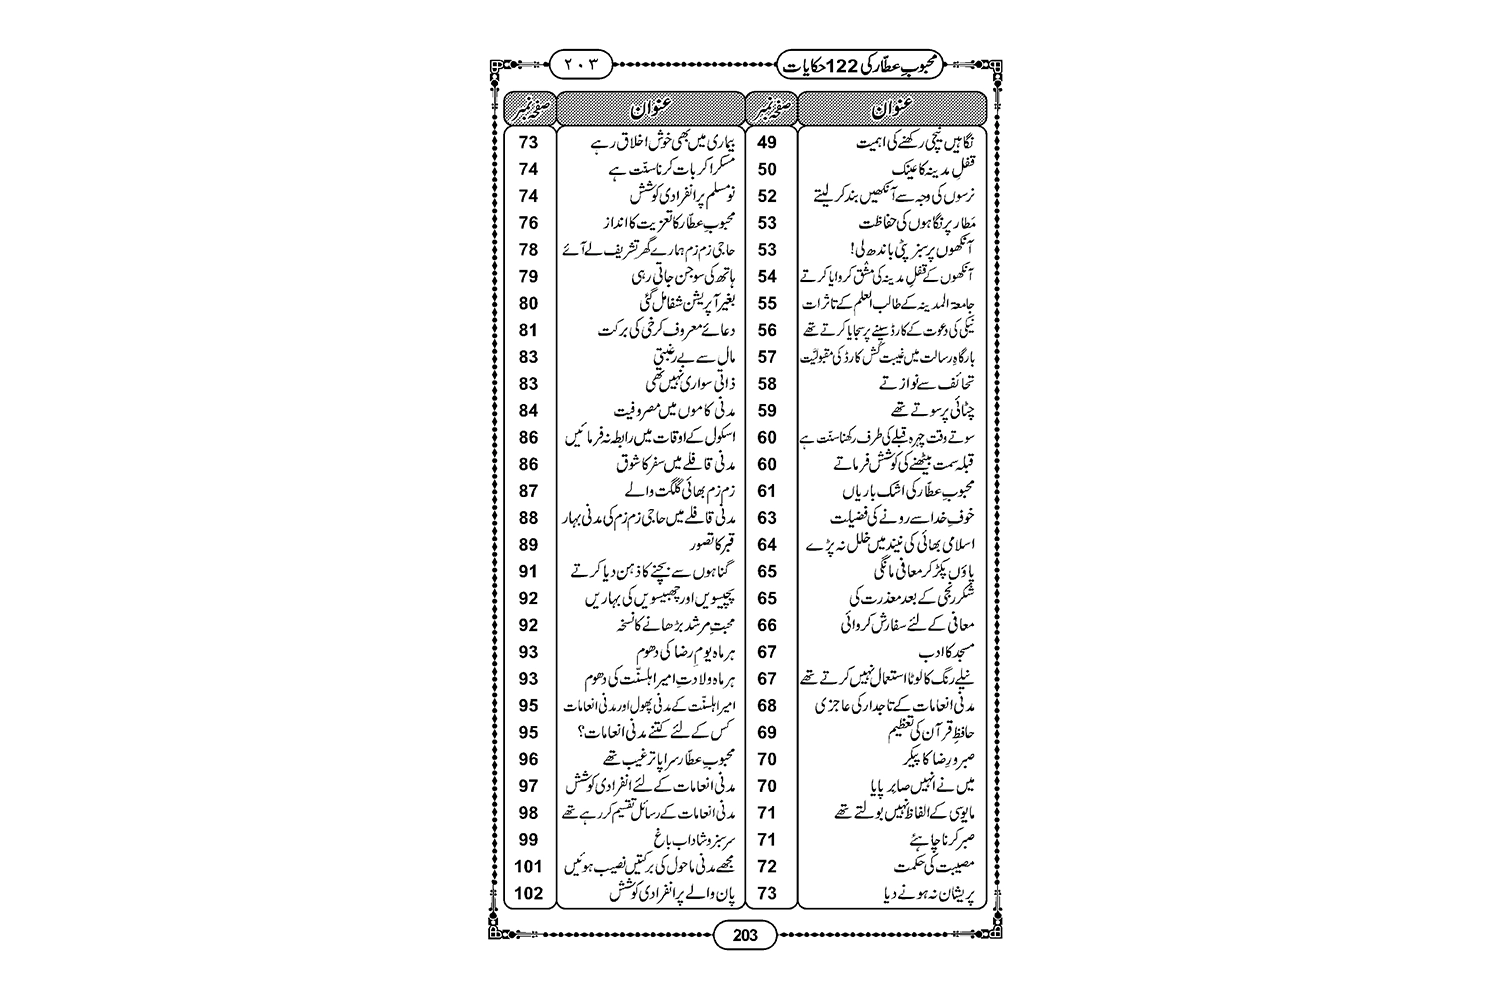 محبوبِ عطّار کی 122 حکایات ۲۰۳
عنوان صفحہ نمبر عنوان صفحہ نمبر
نگاہیں نیچی رکھنے کی اہمیت 49 بیماری میں بھی خوش اخلاق رہے 73
قفلِ مدینہ کا عینک 50 مسکرا کر بات کرنا سنّت ہے 74
نرسوں کی وجہ سے آنکھیں بند کر لیتے 52 نو مسلم پر انفرادی کوشش 74
مَطار پر نگاہوں کی حفاظت 53 محبوبِ عطّار کا تعزیت کا انداز 76
آنکھوں پر سبز پٹی باندھ لی! 53 حاجی زم زم ہمارے گھر تشریف لے آئے 78
آنکھوں کے قفلِ مدینہ کی مشق کروایا کرتے 54 ہاتھ کی سوجن جاتی رہی 79
جامعۃ المدینہ کے طالب العلم کے تاثرات 55 بغیر آپریشن شفا مل گئی 80
نیکی کی دعوت کے کارڈ سینے پر سجایا کرتے تھے 56 دعائے معروف کرخی کی برکت 81
بارگاہِ رسالت میں غیبت کُش کارڈ کی مقبولیَّت 57 مال سے بے رغبتی 83
تحائف سے نوازتے 58 ذاتی سواری نہیں تھی 83
چٹائی پر سوتے تھے 59 مدنی کاموں میں مصروفیت 84
سوتے وقت چہرہ قبلے کی طرف رکھنا سنّت ہے 60 اسکول کے اوقات میں رابطہ نہ فرمائیں 86
قبلہ سمت بیٹھنے کی کوشش فرماتے 60 مدنی قافلے میں سفر کا شوق 86
محبوبِ عطّار کی اشک باریاں 61 زم زم بھائی گلگت والے 87
خوفِ خدا سے رونے کی فضیلت 63 مدنی قافلے میں حاجی زم زم کی مدنی بہار 88
اسلامی بھائی کی نیند میں خلل نہ پڑے 64 قبر کا تصور 89
پاؤں پکڑ کر معافی مانگی 65 گناہوں سے بچنے کا ذہن دیا کرتے 91
شکر رنجی کے بعد معذرت کی 65 پچیسویں اور چھبیسویں کی بہاریں 92
معافی کے لئے سفارش کروائی 66 محبتِ مرشد بڑھانے کا نسخہ 92
مسجد کا ادب 67 ہر ماہ یومِ رضا کی دھوم 93
نیلے رنگ کا لوٹا استعمال نہیں کرتے تھے 67 ہر ماہ ولادتِ امیر اہلسنّت کی دھوم 93
مدنی انعامات کے تاجدار کی عاجزی 68 امیر اہلسنّت کے مدنی پھول اور مدنی انعامات 95
حافظِ قرآن کی تعظیم 69 کس کے لئے کتنے مدنی انعامات؟ 95
صبر و رِضا کا پیکر 70 محبوبِ عطّار سراپا ترغیب تھے 96
میں نے انہیں صابِر پایا 70 مدنی انعامات کے لئے انفرادی کوشش 97
مایوسی کے الفاظ نہیں بولتے تھے 71 مدنی انعامات کے رسائل تقسیم کر رہے تھے 98
صبر کرنا چاہئے 71 سرسبز و شاداب باغ 99
مصیبت کی حکمت 72 مجھے مدنی ماحول کی برکتیں نصیب ہوئیں 101
پریشان نہ ہونے دیا 73 پان والے پر انفرادی کوشش 102
203